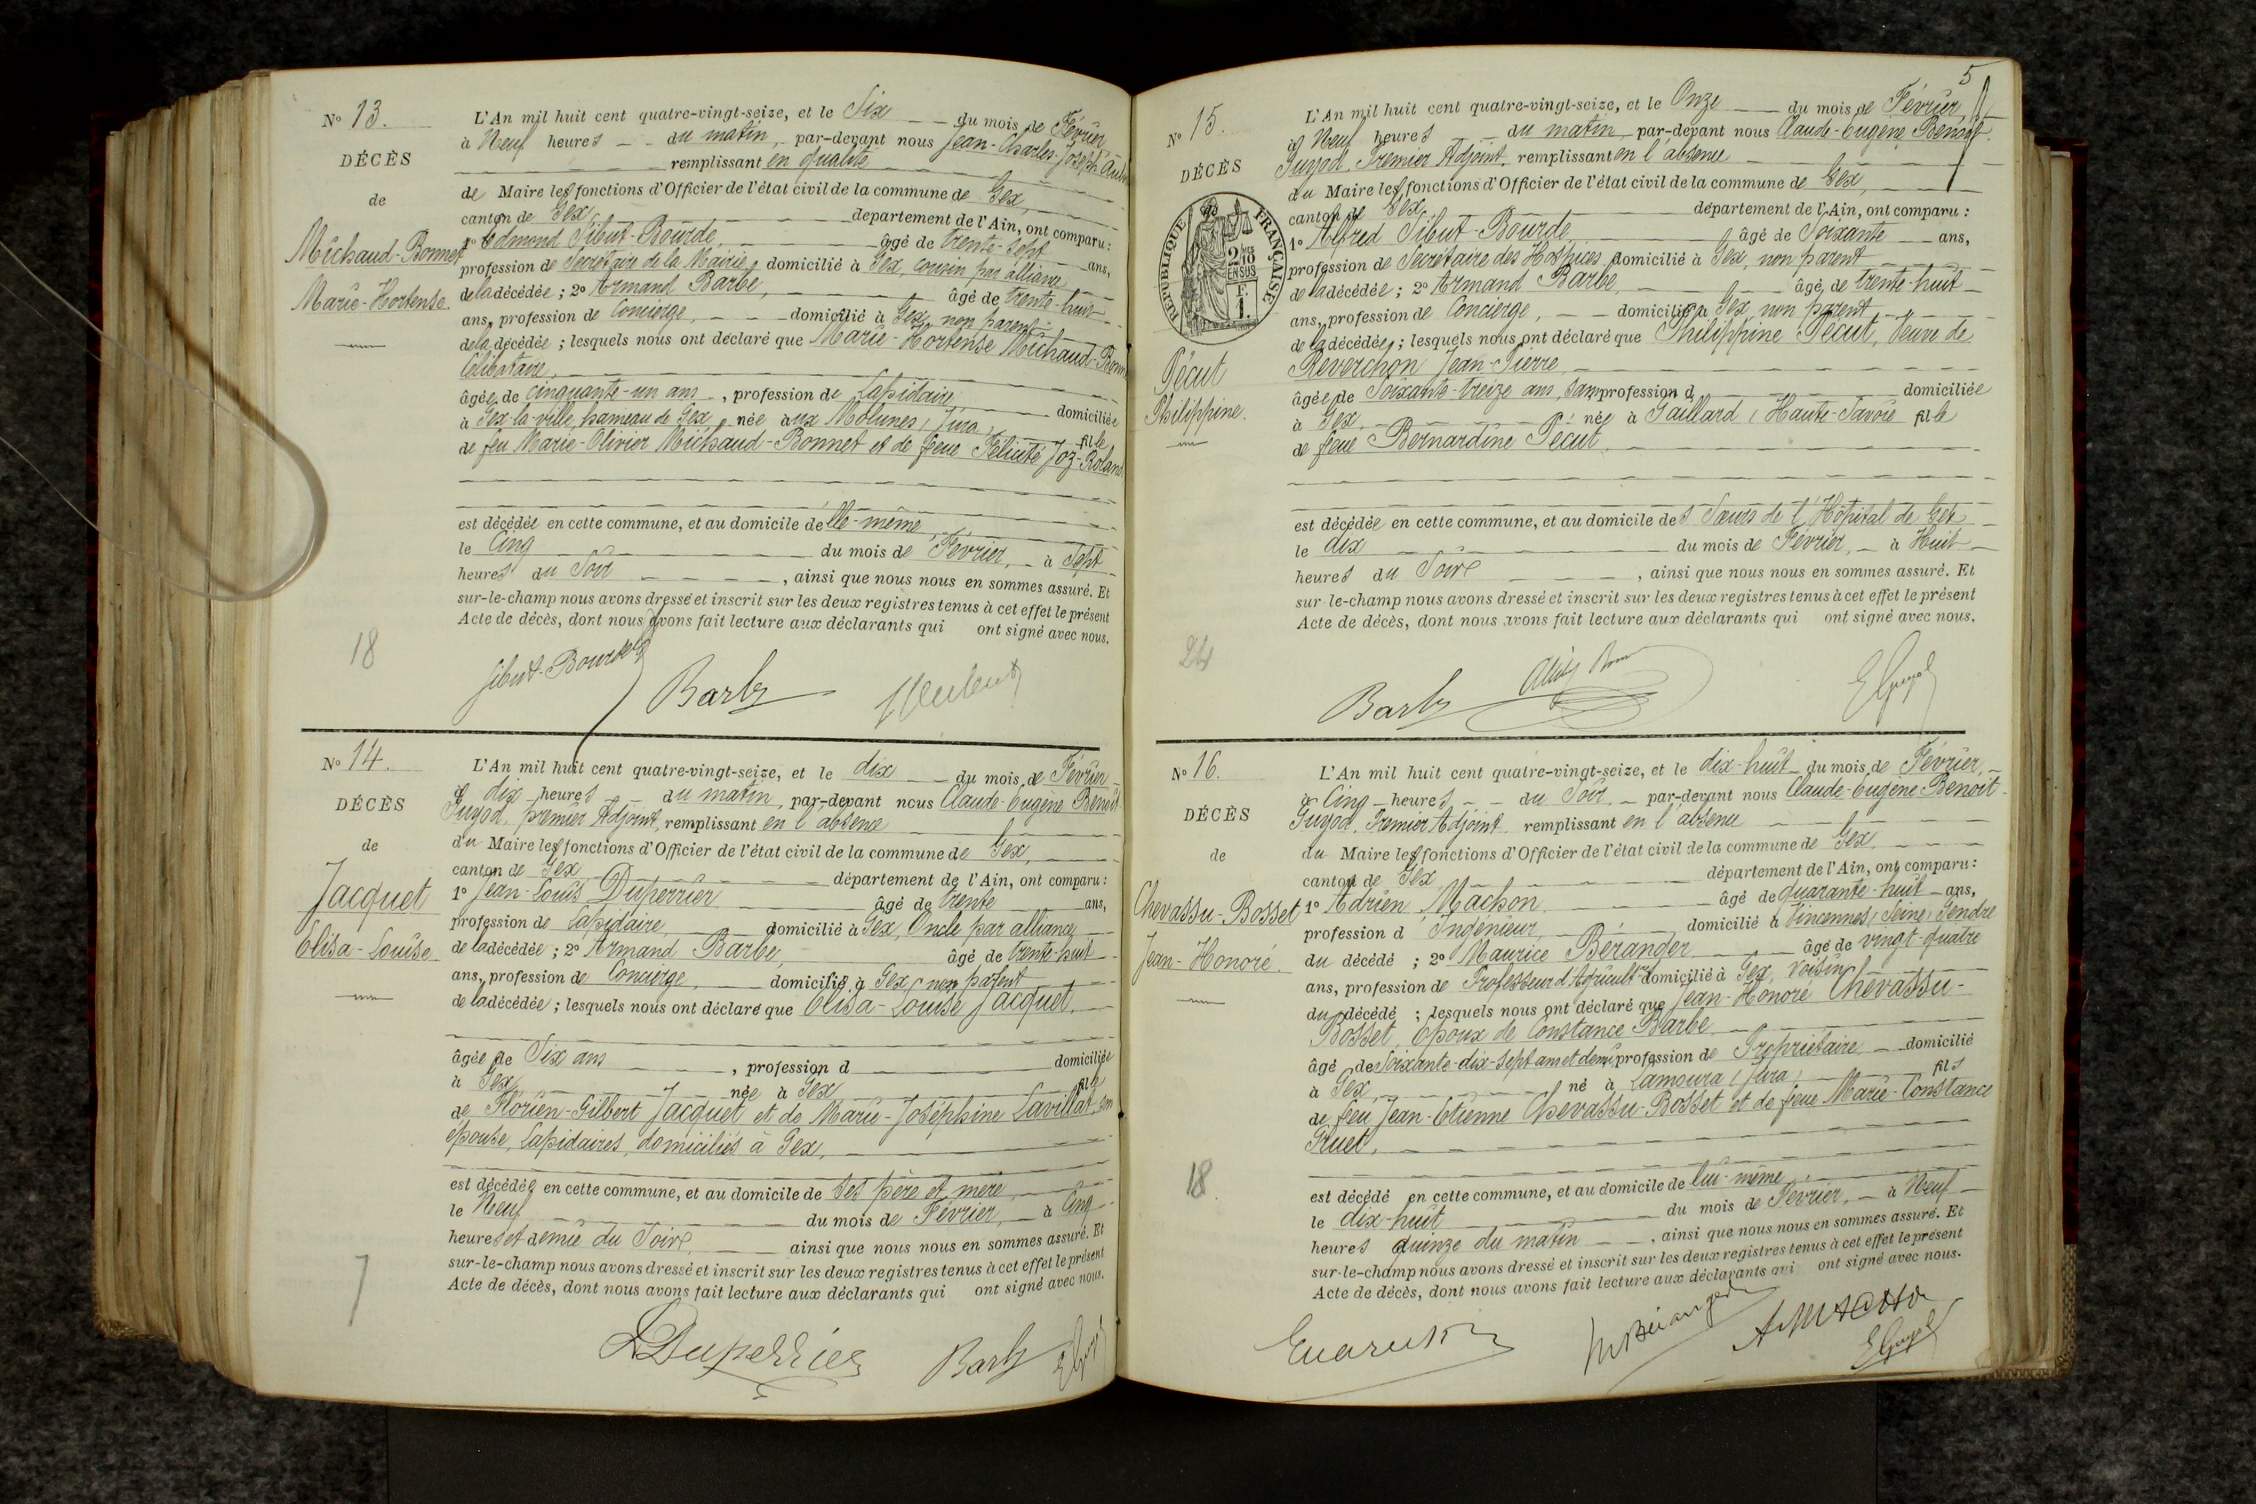 N° 13.
DÉCÈS
de
Michaud-Bonnet
Marie-Hortense
L'An mil huit cent quatre-vingt-seize, et le Six du mois de Février
à Neuf heures du matin, par-devant nous Jean-Charles-Joseph
remplissant en qualité
de Maire les fonctions d'Officier de l'état civil de la commune de Gex,
canton de Gex, département de l'Ain, ont comparu :
1° Edmond Sibut-Bourde, âgé de trente-sept ans,
profession de Secrétaire de la Mairie, domicilié à Gex, cousin par alliance
de la décédée ; 2° Armand Barbe, âgé de trente-huit
ans, profession de Concierge, domicilié à Gex, non parent
de la décédée ; lesquels nous ont déclaré que Marie-Hortense Michaud-Bonnet
Célibataire,
âgée de cinquante-un ans, profession de Lapidaire domiciliée
à Gex-la-ville, hameau de Gex, née aux Molunes (Jura) fille
de feu Marie-Olivier Michaud-Bonnet et de feue Félicité Joz-Roland
est décédée en cette commune, et au domicile d'elle-même
le Cinq du mois de Février, à Sept
heures du Soir, ainsi que nous nous en sommes assuré. Et
sur-le-champ nous avons dressé et inscrit sur les deux registres tenus à cet effet le présent
Acte de décès, dont nous avons fait lecture aux déclarants qui ont signé avec nous.
18
Sibut-Bourde Barbe
N° 14.
DÉCÈS
de
Jacquet
Elisa-Louise
L'An mil huit cent quatre-vingt-seize, et le dix du mois de Février
à dix heures du matin, par-devant nous Claude-Eugène Benoit
Guyod, premier Adjoint, remplissant en l'absence
du Maire les fonctions d'Officier de l'état civil de la commune de Gex,
canton de Gex département de l'Ain, ont comparu :
1° Jean-Louis Duperrier âgé de trente ans,
profession de Lapidaire, domicilié à Gex, Oncle par alliance
de la décédée ; 2° Armand Barbe, âgé de trente-huit
ans, profession de Concierge, domicilié à Gex, non parent
de la décédée ; lesquels nous ont déclaré que Elisa-Louise Jacquet,
âgée de Six ans, profession d domiciliée
à Gex, née à Gex fille
de Florien-Gilbert Jacquet et de Marie-Joséphine Lavillat son
épouse, Lapidaires, domiciliés à Gex,
est décédée en cette commune, et au domicile de ses père et mère,
le Neuf du mois de Février, à Cinq
heures et demie du Soir, ainsi que nous nous en sommes assuré. Et
sur-le-champ nous avons dressé et inscrit sur les deux registres tenus à cet effet le présent
Acte de décès, dont nous avons fait lecture aux déclarants qui ont signé avec nous.
7
Duperrier Barbe EGuyod
5
N° 15.
DÉCÈS
de
RÉPUBLIQUE FRANÇAISE
2/10 EN SUS
F.
1.
Pécut
Philippine.
L'An mil huit cent quatre-vingt-seize, et le Onze du mois de Février
à Neuf heures du matin par-devant nous Claude-Eugène Benoit
Guyod, Premier Adjoint, remplissant en l'absence
du Maire les fonctions d'Officier de l'état civil de la commune de Gex,
canton de Gex, département de l'Ain, ont comparu :
1° Alfred Sibut-Bourde âgé de Soixante ans,
profession de Secrétaire des Hospices, domicilié à Gex, non parent
de la décédée ; 2° Armand Barbe, âgé de trente-huit
ans, profession de Concierge, domicilié à Gex, non parent
de la décédée ; lesquels nous ont déclaré que Philippine Pécut, Veuve de
Reverchon Jean-Pierre,
âgée de Soixante-treize ans, sans profession d domiciliée
à Gex, née à Gaillard (Haute-Savoie) fille
de feue Bernardine Pécut,
est décédée en cette commune, et au domicile des Sœurs de l'Hôpital de Gex
le dix du mois de Février, à Huit
heures du Soir, ainsi que nous nous en sommes assuré. Et
sur-le-champ nous avons dressé et inscrit sur les deux registres tenus à cet effet le présent
Acte de décès, dont nous avons fait lecture aux déclarants qui ont signé avec nous.
24
Barbe EGuyod
N° 16.
DÉCÈS
de
Chevassu-Bosset
Jean-Honoré.
L'An mil huit cent quatre-vingt-seize, et le dix-huit du mois de Février,
à Cinq heures du Soir, par-devant nous Claude-Eugène Benoit
Guyod, Premier Adjoint remplissant en l'absence
du Maire les fonctions d'Officier de l'état civil de la commune de Gex,
canton de Gex département de l'Ain, ont comparu :
1° Adrien Machon, âgé de quarante-huit ans,
profession d'Ingénieur, domicilié à Vincennes (Seine) Gendre
du décédé ; 2° Maurice Béranger âgé de vingt-quatre
ans, profession de Professeur d'Agricultre domicilié à Gex, Voisin
du décédé ; lesquels nous ont déclaré que Jean-Honoré Chevassu-
Bosset, Epoux de Constance Barbe
âgé de Soixante-dix-sept ans et demi, profession de Propriétaire domicilié
à Gex, né à Lamoura (Jura) fils
de feu Jean-Etienne Chevassu-Bosset et de feue Marie-Constance
Gruet,
est décédé en cette commune, et au domicile de lui-même
le dix-huit du mois de Février, à Neuf
heures quinze du matin, ainsi que nous nous en sommes assuré. Et
sur-le-champ nous avons dressé et inscrit sur les deux registres tenus à cet effet le présent
Acte de décès, dont nous avons fait lecture aux déclarants qui ont signé avec nous.
18.
MBéranger EGuyod